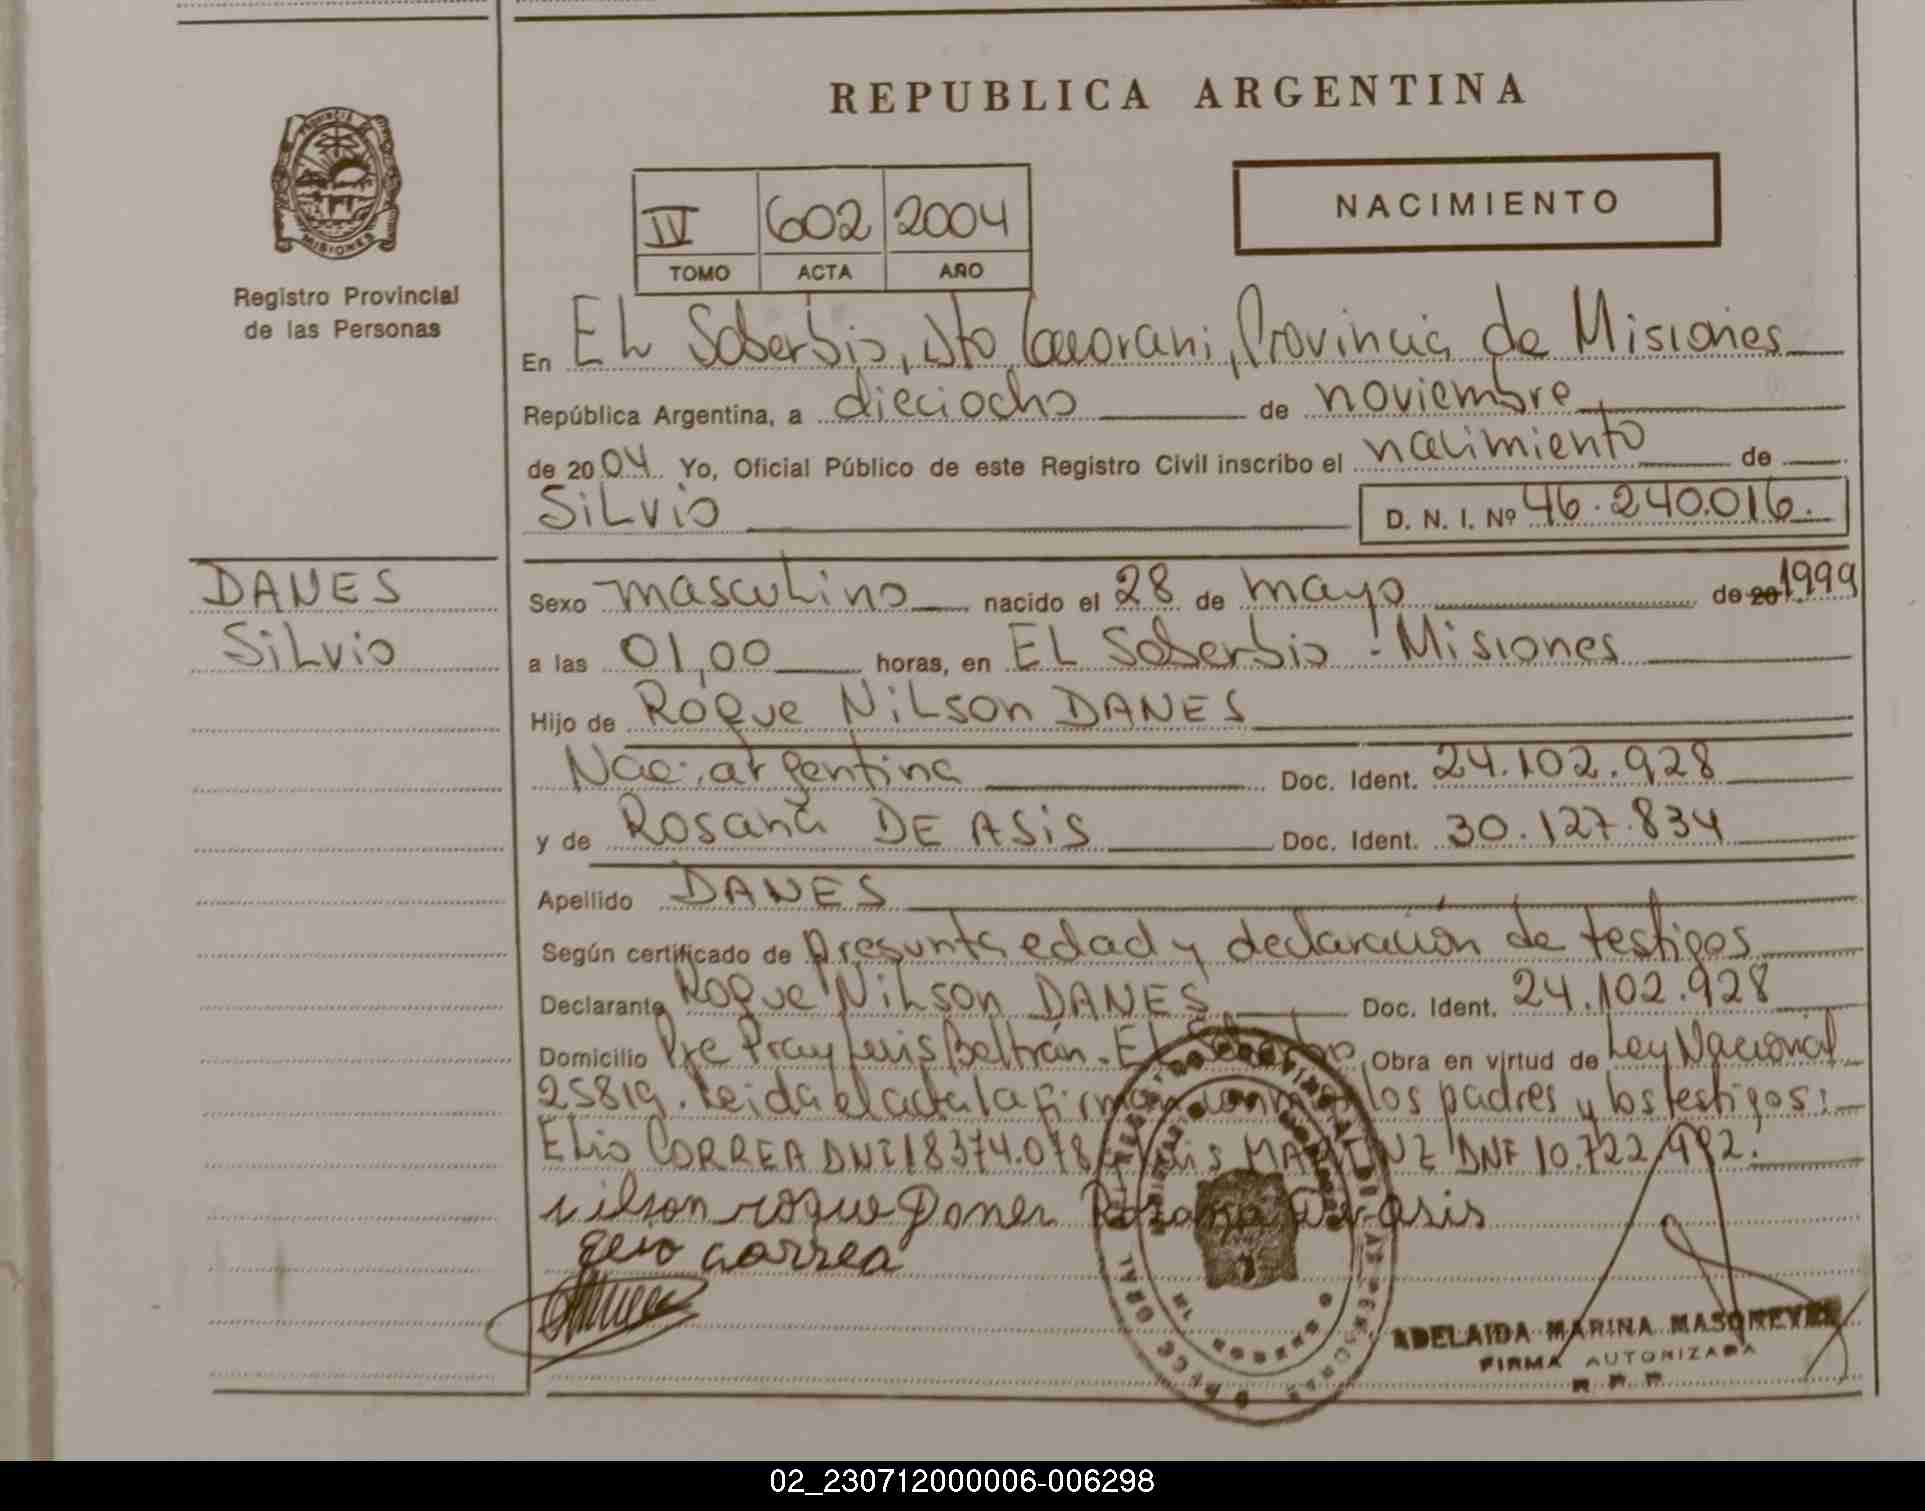 REPUBLICA ARGENTINA
PROVINCIA DE
MISIONES
Registro Provincial
de las Personas
IV 602 2004
TOMO ACTA AÑO
NACIMIENTO
En EL Soberbio, Dto Guarani, Provincia de Misiones
República Argentina, a dieciocho de noviembre
de 2004 Yo, Oficial Público de este Registro Civil inscribo el nacimiento de
SiLvio D. N. I. Nº 46.240.016.
DANES
SiLvio
Sexo mascuLino nacido el 28 de mayo de 20 1999
a las 01,00 horas, en EL Soberbio - Misiones
Hijo de Roque NiLson DANES
Nac. argentina Doc. Ident. 24.102.928
y de Rosana DE ASiS Doc. Ident. 30.127.834
Apellido DANES
Según certificado de Presunta edad y declaración de testigos
Declarante Roque NiLson DANES Doc. Ident. 24.102.928
Domicilio Pje Fray Luis Beltrán - El Soberbio, Obra en virtud de Ley Nacional
25819. Leida el acta la firman los padres y los testigos:
ELio CORREA DNI 18374.078 DNI 10.722.
nilson roque Danes Rosana De asis
Elio correa
ADELAIDA MARINA
FIRMA AUTORIZADA
02_230712000006-006298